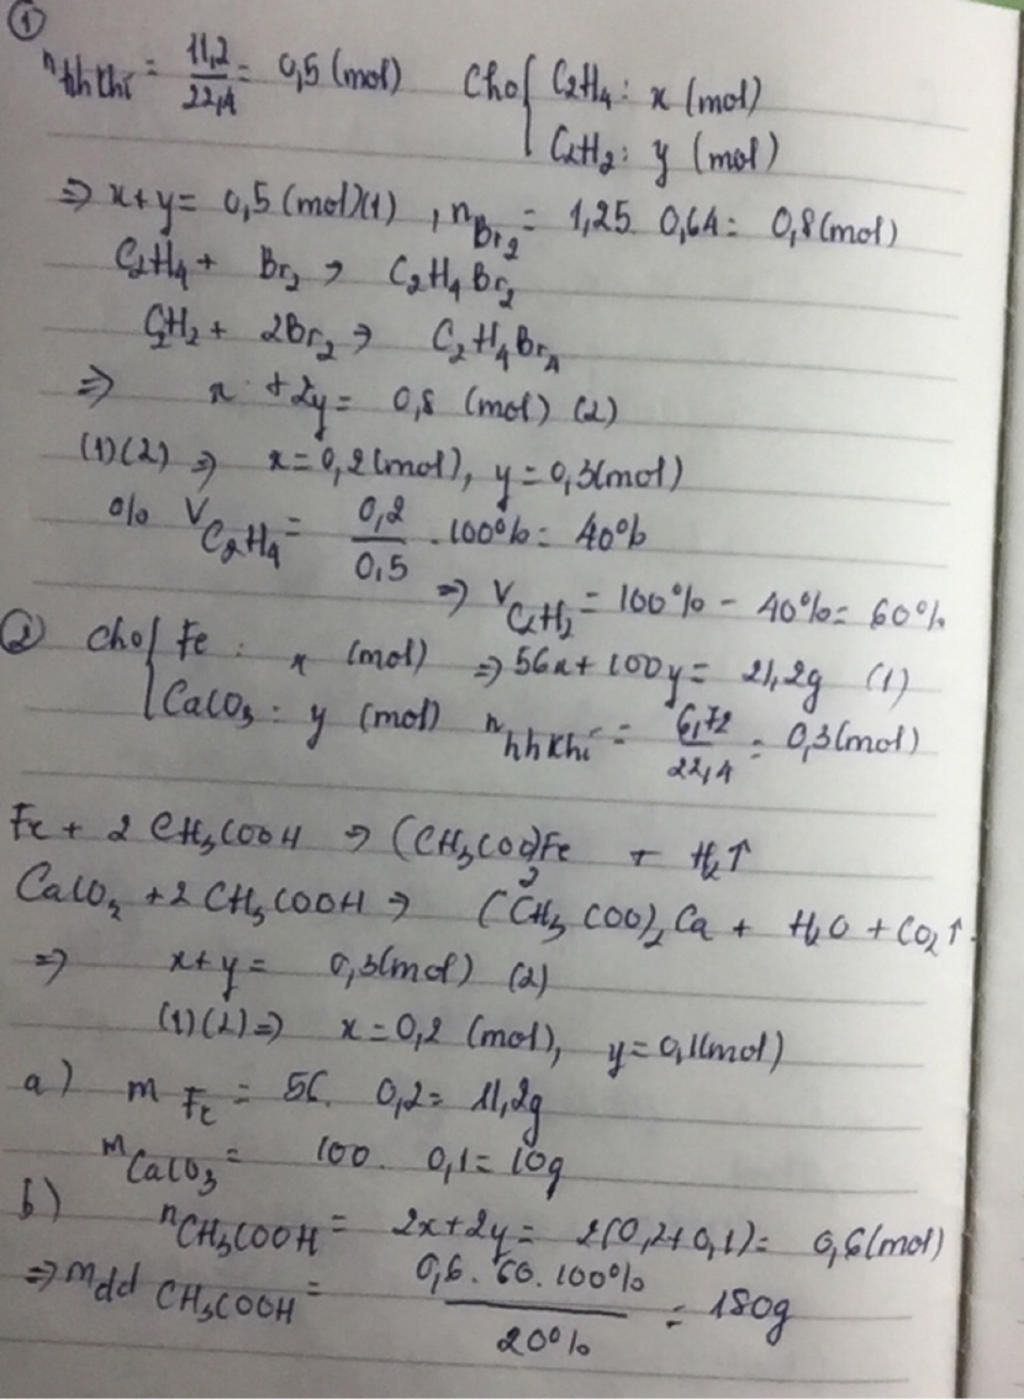 ①
n hh khí = 11,2/22,4 = 0,5 (mol) Cho { C₂H₄: x (mol)
C₂H₂: y (mol)
=> x+y = 0,5 (mol)(1) , n Br₂ = 1,25. 0,64 = 0,8 (mol)
C₂H₄ + Br₂ → C₂H₄Br₂
C₂H₂ + 2Br₂ → C₂H₄Br₄
=> x + 2y = 0,8 (mol) (2)
(1)(2) => x = 0,2 (mol), y = 0,3(mol)
% V C₂H₄ = 0,2/0,5 . 100% = 40%
=> V C₂H₂ = 100% - 40% = 60%
② Cho { Fe : x (mol) => 56x + 100y = 21,2g (1)
CaCO₃ : y (mol) n hh khí = 6,72/22,4 = 0,3(mol)
Fe + 2 CH₃COOH → (CH₃COO)₂Fe + H₂↑
CaCO₃ + 2 CH₃COOH → (CH₃COO)₂Ca + H₂O + CO₂↑
=> x+y = 0,3(mol) (2)
(1)(2) => x = 0,2 (mol), y = 0,1(mol)
a) m Fe = 56. 0,2 = 11,2g
m CaCO₃ = 100. 0,1 = 10g
b) n CH₃COOH = 2x+2y = 2(0,2+0,1) = 0,6(mol)
=> m dd CH₃COOH = 0,6. 60. 100%/20% = 180g